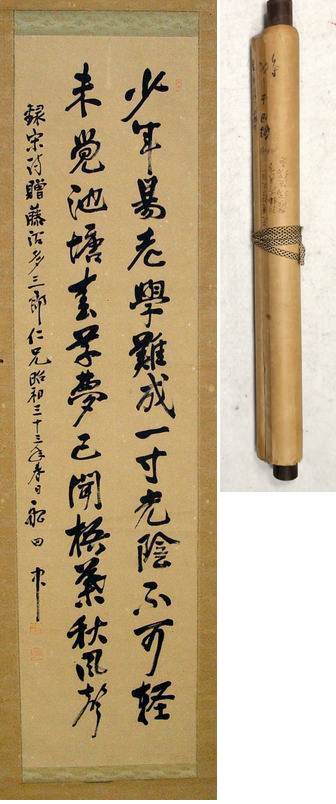 少年易老學難成一寸光陰不可軽
未覺池塘春草夢已聞梧葉秋風聲
録宋詩贈藤沼多三郎仁兄昭和三十三年春日船田中